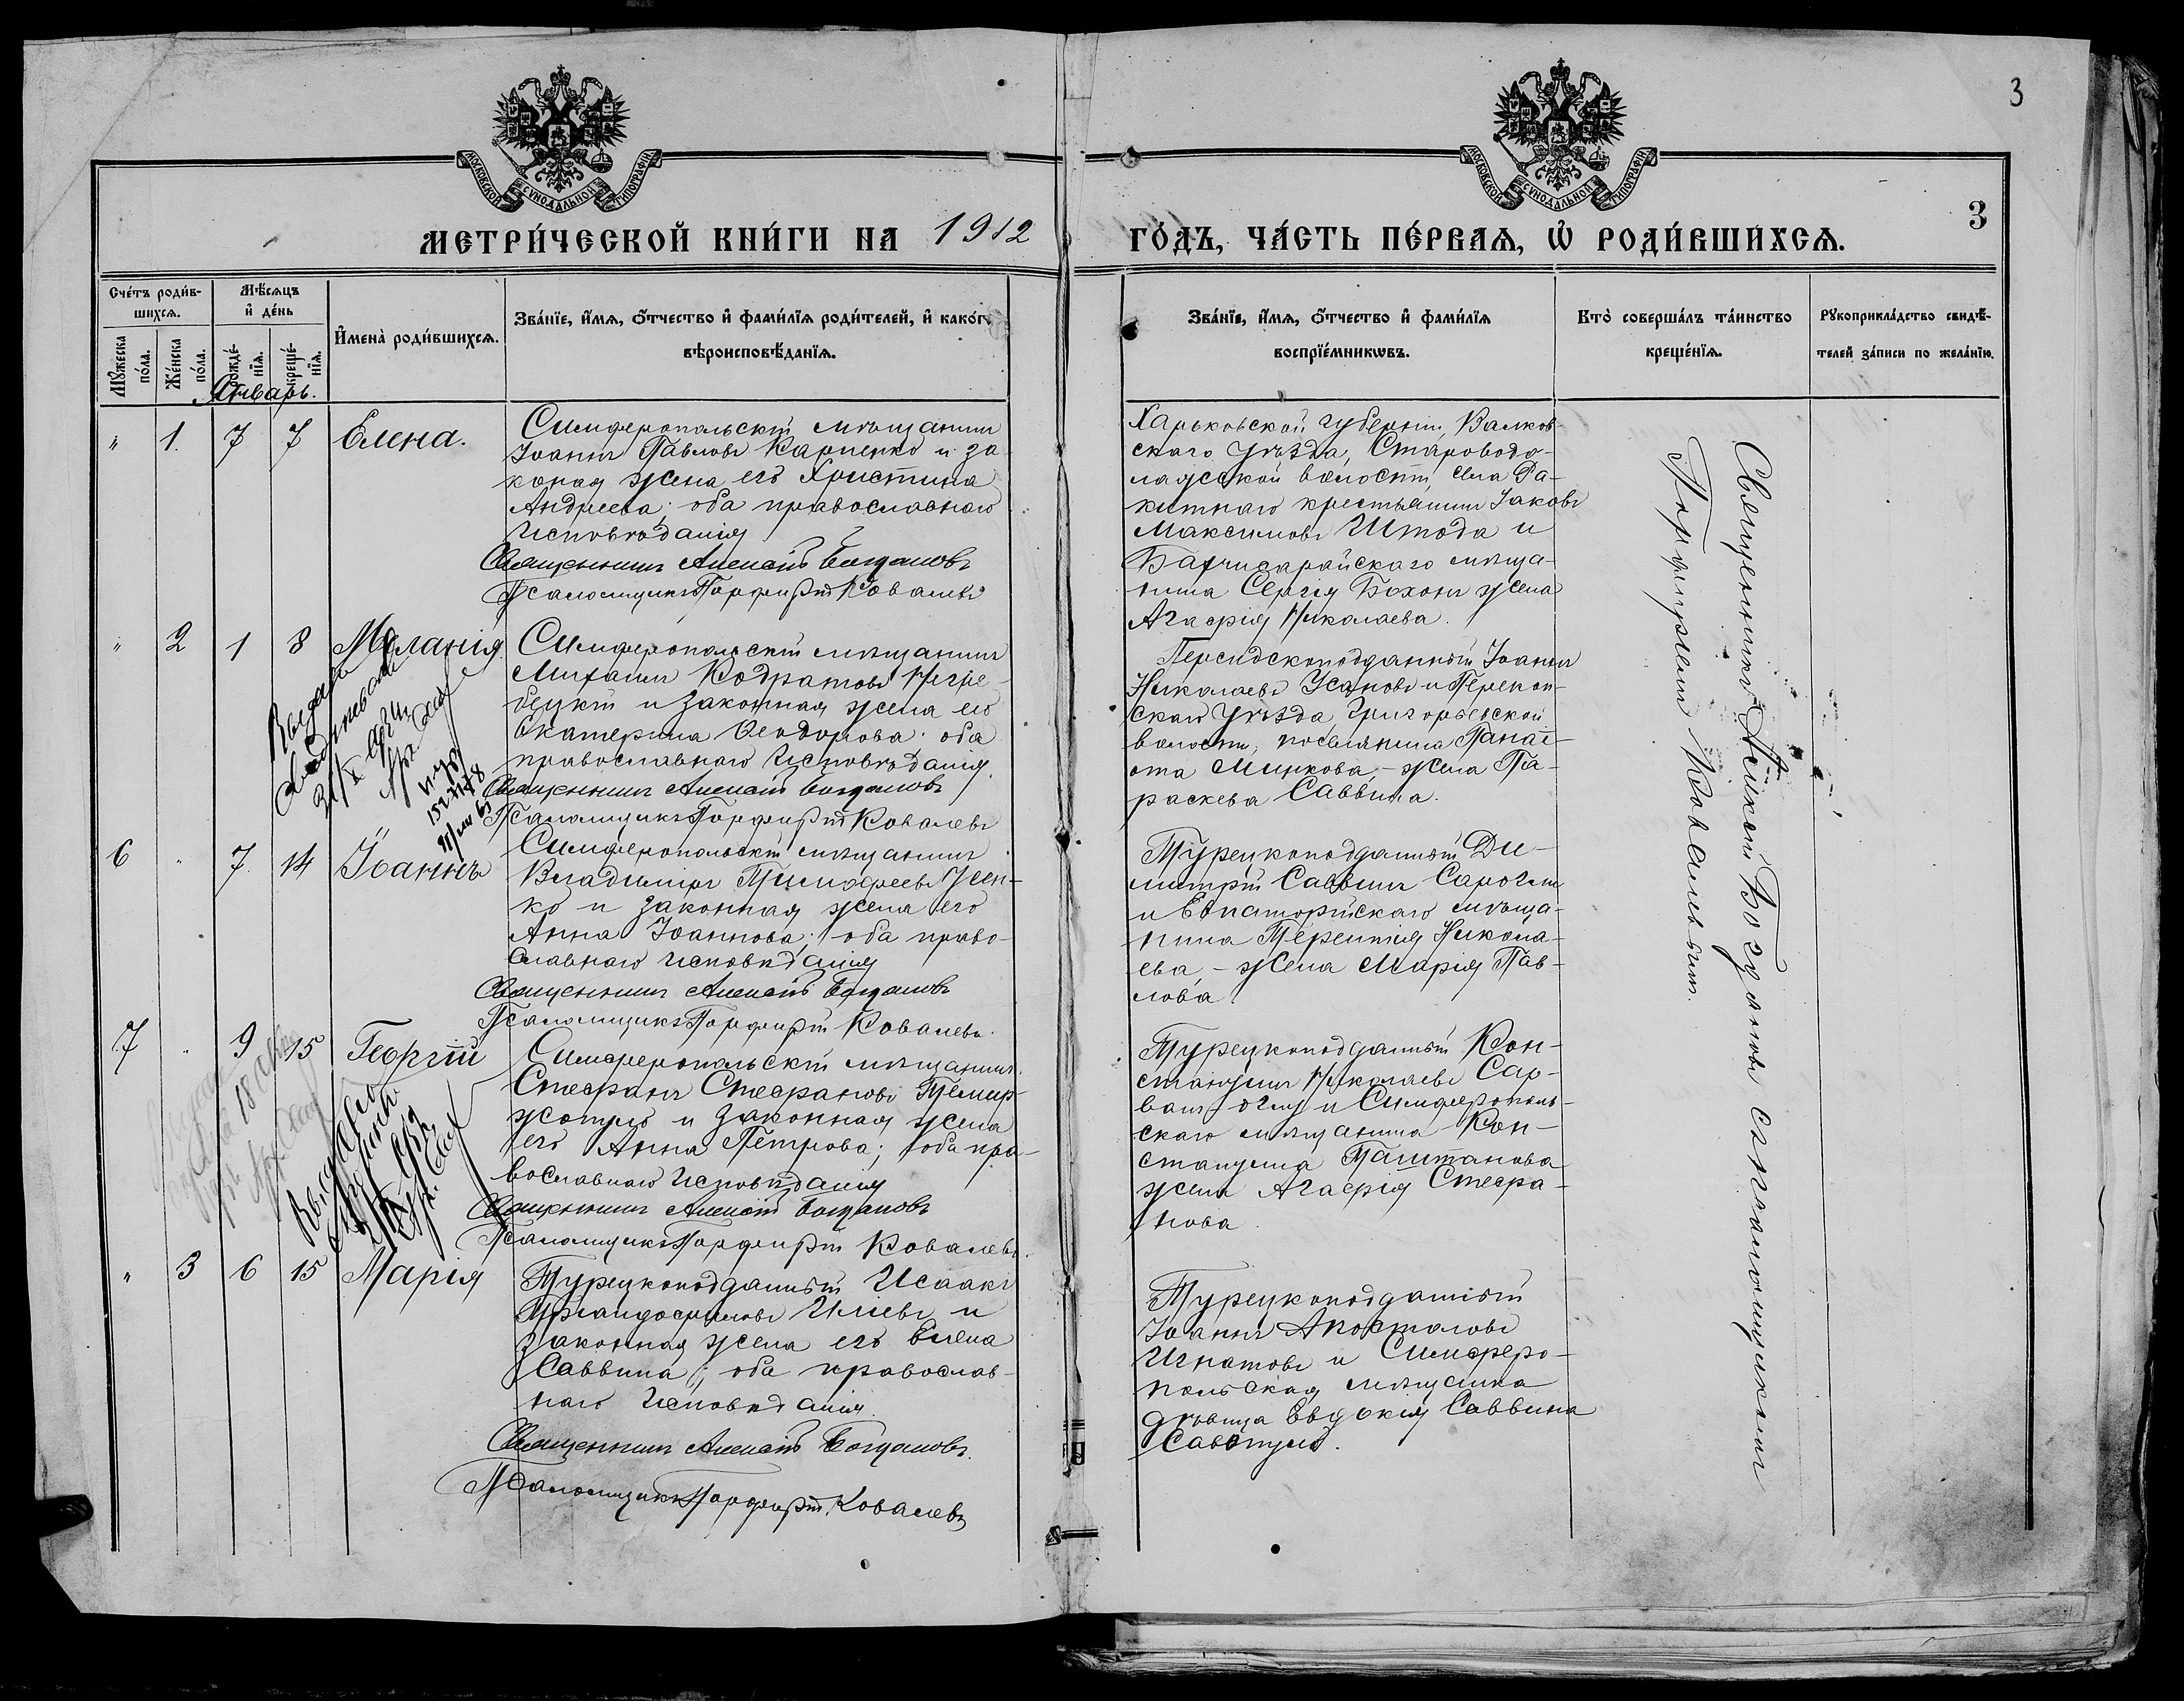 3
МОСКОВСКОЙ СѴНОДАЛЬНОЙ ТИПОГРАФІИ
МОСКОВСКОЙ СѴНОДАЛЬНОЙ ТИПОГРАФІИ
3
МЕТРИ́ЧЕСКОЙ КНИ́ГИ НА 1912 ГО́ДЪ, ЧА́СТЬ ПЕ́РВАѦ, Ѡ҆ РОДИ́ВШИХСѦ.
Сче́тъ роди́в-
шихсѧ.
Мѣ́сѧцъ
и҆ де́нь
Мꙋ́жеска
по́ла.
Же́нска
по́ла.
рожде́-
нїѧ.
креще́-
нїѧ.
И҆мена̀ роди́вшихсѧ.
Зва́нїе, и҆́мѧ, ѻ҆́тчество и҆ фами́лїѧ роди́телей, и҆ како́гѡ
вѣроисповѣ́данїѧ.
Зва́нїе, и҆́мѧ, ѻ҆́тчество и҆ фами́лїѧ
воспрїе́мникѡвъ.
Кто̀ соверша́лъ та́инство
креще́нїѧ.
Рꙋкоприкла́дство свидѣ́-
телей за́писи по жела́нїю.
Январь.
" 1. 7 7 Елена.
Симферопольскій мѣщанинъ
Іоаннъ Павловъ Карпенко и за-
коная жена его Христина
Андреева; оба православнаго
исповѣданія
Священникъ Алексій Богдановъ
Псаломщикъ Порфирій Ковалевъ
Харьковской губерніи, Валков-
скаго Уѣзда, Староводо-
лажской волости, села Ра-
китнаго крестьянинъ Іаковъ
Максимовъ Штода и
Бахчисарайскаго мѣща-
нина Сергія Бохонъ жена
Агафія Николаева.
" 2 1 8 Меланія.
Симферопольскій мѣщанинъ
Михаилъ Кодратовъ
и законная жена его
Екатерина Ѳеодорова; оба
православнаго исповѣданія.
Священникъ Алексій Богдановъ
Псаломщикъ Порфирій Ковалевъ
Персидскоподданный Іоаннъ
Николаевъ Усановъ и Перекоп-
скаго Уѣзда, Григорьевской
волости, поселянина Панаі-
ота Минкова, – жена Па-
раскева Саввина.
6 " 7. 14 Іоаннъ
Симферопольскій мѣщанинъ
Владиміръ Тимофеевъ Усен-
ко и законная жена его
Анна Іоаннова; оба право-
славнаго исповѣданія
Священникъ Алексій Богдановъ
Псаломщикъ Порфирій Ковалевъ.
Турецкоподданный Ди-
митрій Саввинъ
и Евпаторійскаго мѣща-
нина Терентія Никола-
ева, – жена Марія Пав-
лова.
7 " 9 15 Георгій
Симферопольскій мѣщанинъ
Стефанъ Стефановъ Темир-
и законная жена
его Анна Петрова; оба пра-
вославнаго исповѣданія
Священникъ Алексій Богдановъ
Псаломщикъ Порфирій Ковалевъ.
Турецкоподданный Кон-
стантинъ Николаевъ Сар-
и Симферополь-
скаго мѣщанина Кон-
стантина Паштанова
жена Агафія Стефа-
нова.
" 3 6 15 Марія
Турецкоподданный Исаакъ
Иліевъ и
законная жена его Елена
Саввина; оба православ-
наго исповѣданія.
Священникъ Алексій Богдановъ.
Псаломщикъ Порфирій Ковалевъ
Турецкоподданный
Іоаннъ Апостоловъ
Игнатовъ и Симферо-
польская мѣщанка
дѣвица Евдокія Саввина
Священникъ Алексій Богдановъ съ псаломщикомъ
Порфиріемъ Ковалевымъ.